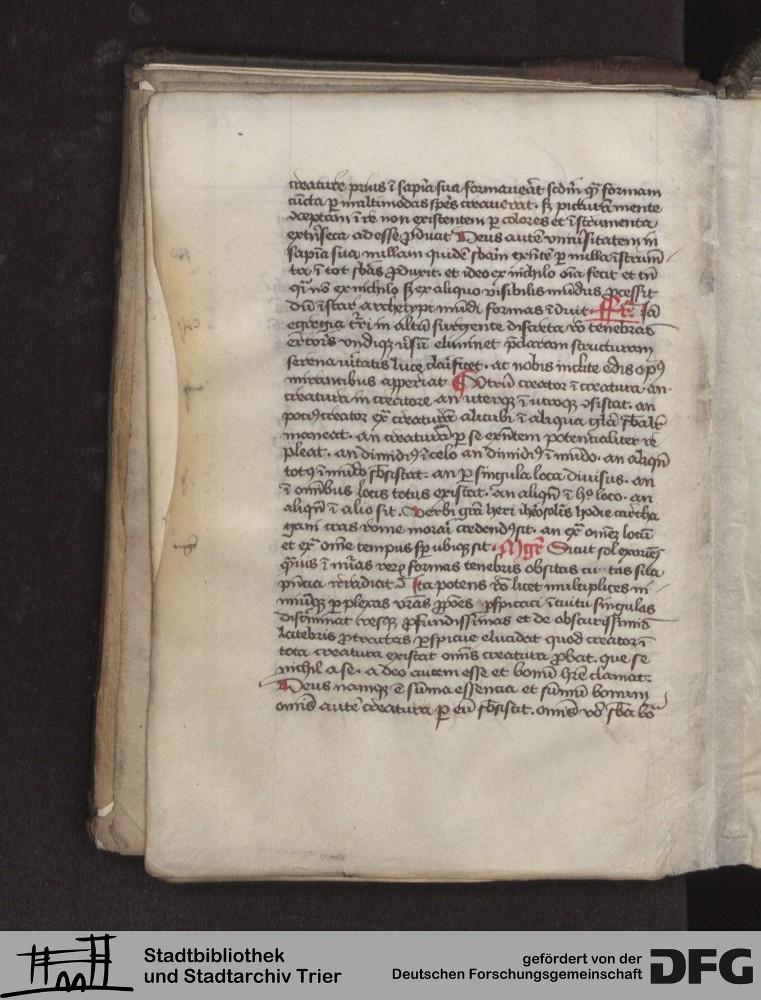 creature prius ĩ sapĩa sua formaueãt scdm̃ q̃ formam
cũcta p multimodas sp̃es creauerat. sꝫ picturã mente
ꝯceptam ĩ re non existentem p colores et ĩstrumenta
extĩseca ad esse ꝓducit Deus autẽ vniũsitatem in
sapĩa sua nullam quidẽ sbãm exñtẽ p nulla ĩstrum̃
ta ĩ tot sbãs ꝓduxit. et ideo ex nichilo oĩa fecit et tñ
nõ ex nichilo sꝫ ex aliquo visibilis mũdus ꝓcessit
dũ ĩstar archetypi mũdi formas ĩduit. Iã
egregia ĩ in altũ surgente discreta rõ tenebras
erroris vndiqꝫ eliminet p̃claram structuram
serena ũitatis luce clarificet. ac nobis inclite edis opꝰ
mirantibus apperiat Vtrũ creator ĩ creatura. an
creatura in creatore an uterqꝫ ĩ utroqꝫ ꝯsistat. an
pociꝰ creator ex̃ creaturã alicubi ĩ aliqua
maneat. an creaturã p se exñtem potencialiter re
pleat. an dimidiꝰ ĩ celo an dimidiꝰ ĩ mũdo. an aliqñ
totꝰ ĩ mũdo sb̃sistat. an p singula loca diuisus. an
ĩ omnibus locis totus existat. an aliqñ ĩ hº loco. an
aliqñ ĩ alio sit. Verbi grã heri iherosolis hodie cartha
gini cras rome morari credendꝰ sit. an ex̃ om̃ẽ locũ
et ex̃ om̃e tempus sp̃ ubiqꝫ sit. Mgr̃ Sicut sol exoriẽs
ĩ uarias rerꝝ formas tenebris obsitas
p̃ncia irradicat Ita potens rõ licet multiplices in
p plexas vr̃as ꝓpões pspicaci ĩtuitu singulas
discriminat cresqꝫ ꝓfundissimas et de obscurissimis
latebris ꝓtractas pspicue elucidat quod creator ĩ
tota creatura existat omĩs creatura ꝓbat. que se
nichil a se. a deo autem esse et bonũ hr̃e clamat.
Deus namqꝫ ẽ sũma essencia et sũmũ bonum
omĩs autẽ creatura p eũ sb̃sistit. omĩs vº sb̃a bõ
Stadtbibliothek
und Stadtarchiv Trier
gefördert von der
Deutschen Forschungsgemeinschaft
DFG